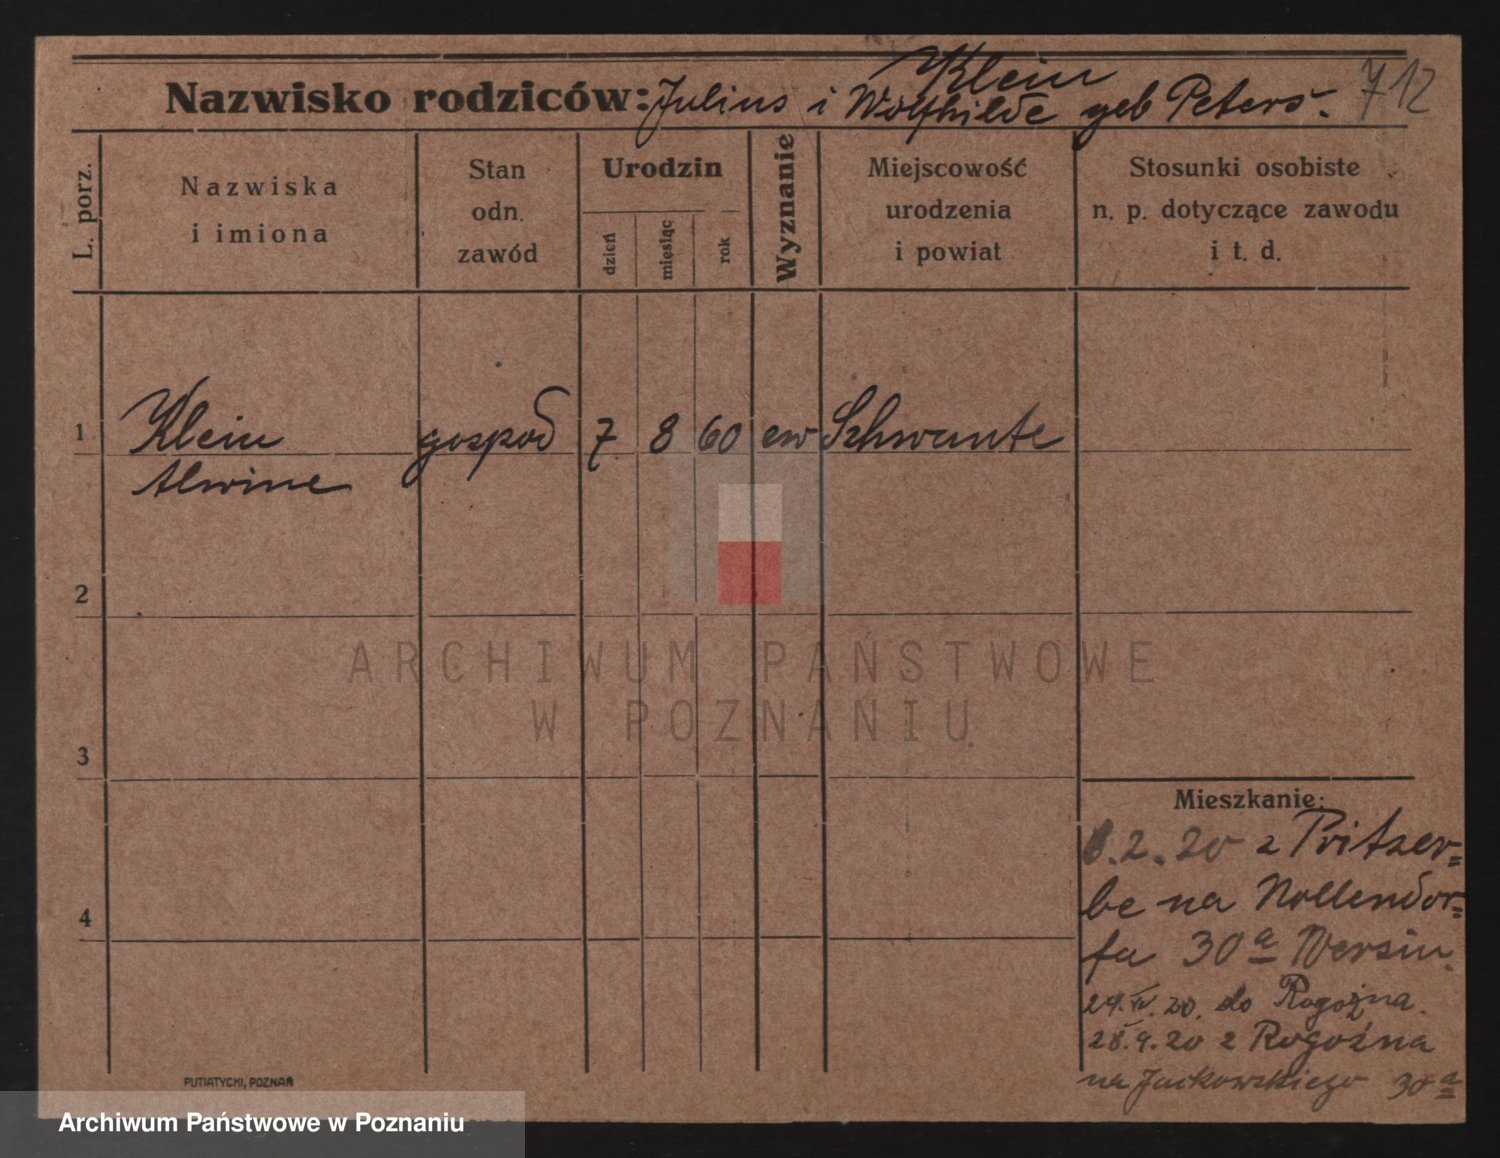 Klein 712
Nazwisko rodziców: Julius i Wolfhilde geb Peters.
L. porz.
Nazwiska
i imiona
Stan
odn.
zawód
Urodzin
dzień
miesiąc
rok
Wyznanie
Miejscowość
urodzenia
i powiat
Stosunki osobiste
n. p. dotyczące zawodu
i t. d.
1 Klein gospod 7 8 60 ew Schwante
Alwine
2
3
4
Mieszkanie:
8.2.20 z Pritzer=
be na Nollendor=
fa 30a Wersin.
29.IV.20. do Rogoźna.
28.9.20 z Rogoźna
na Jackowskiego 30a
PUTIATYCKI, POZNAŃ
ARCHIWUM PAŃSTWOWE
W POZNANIU
Archiwum Państwowe w Poznaniu